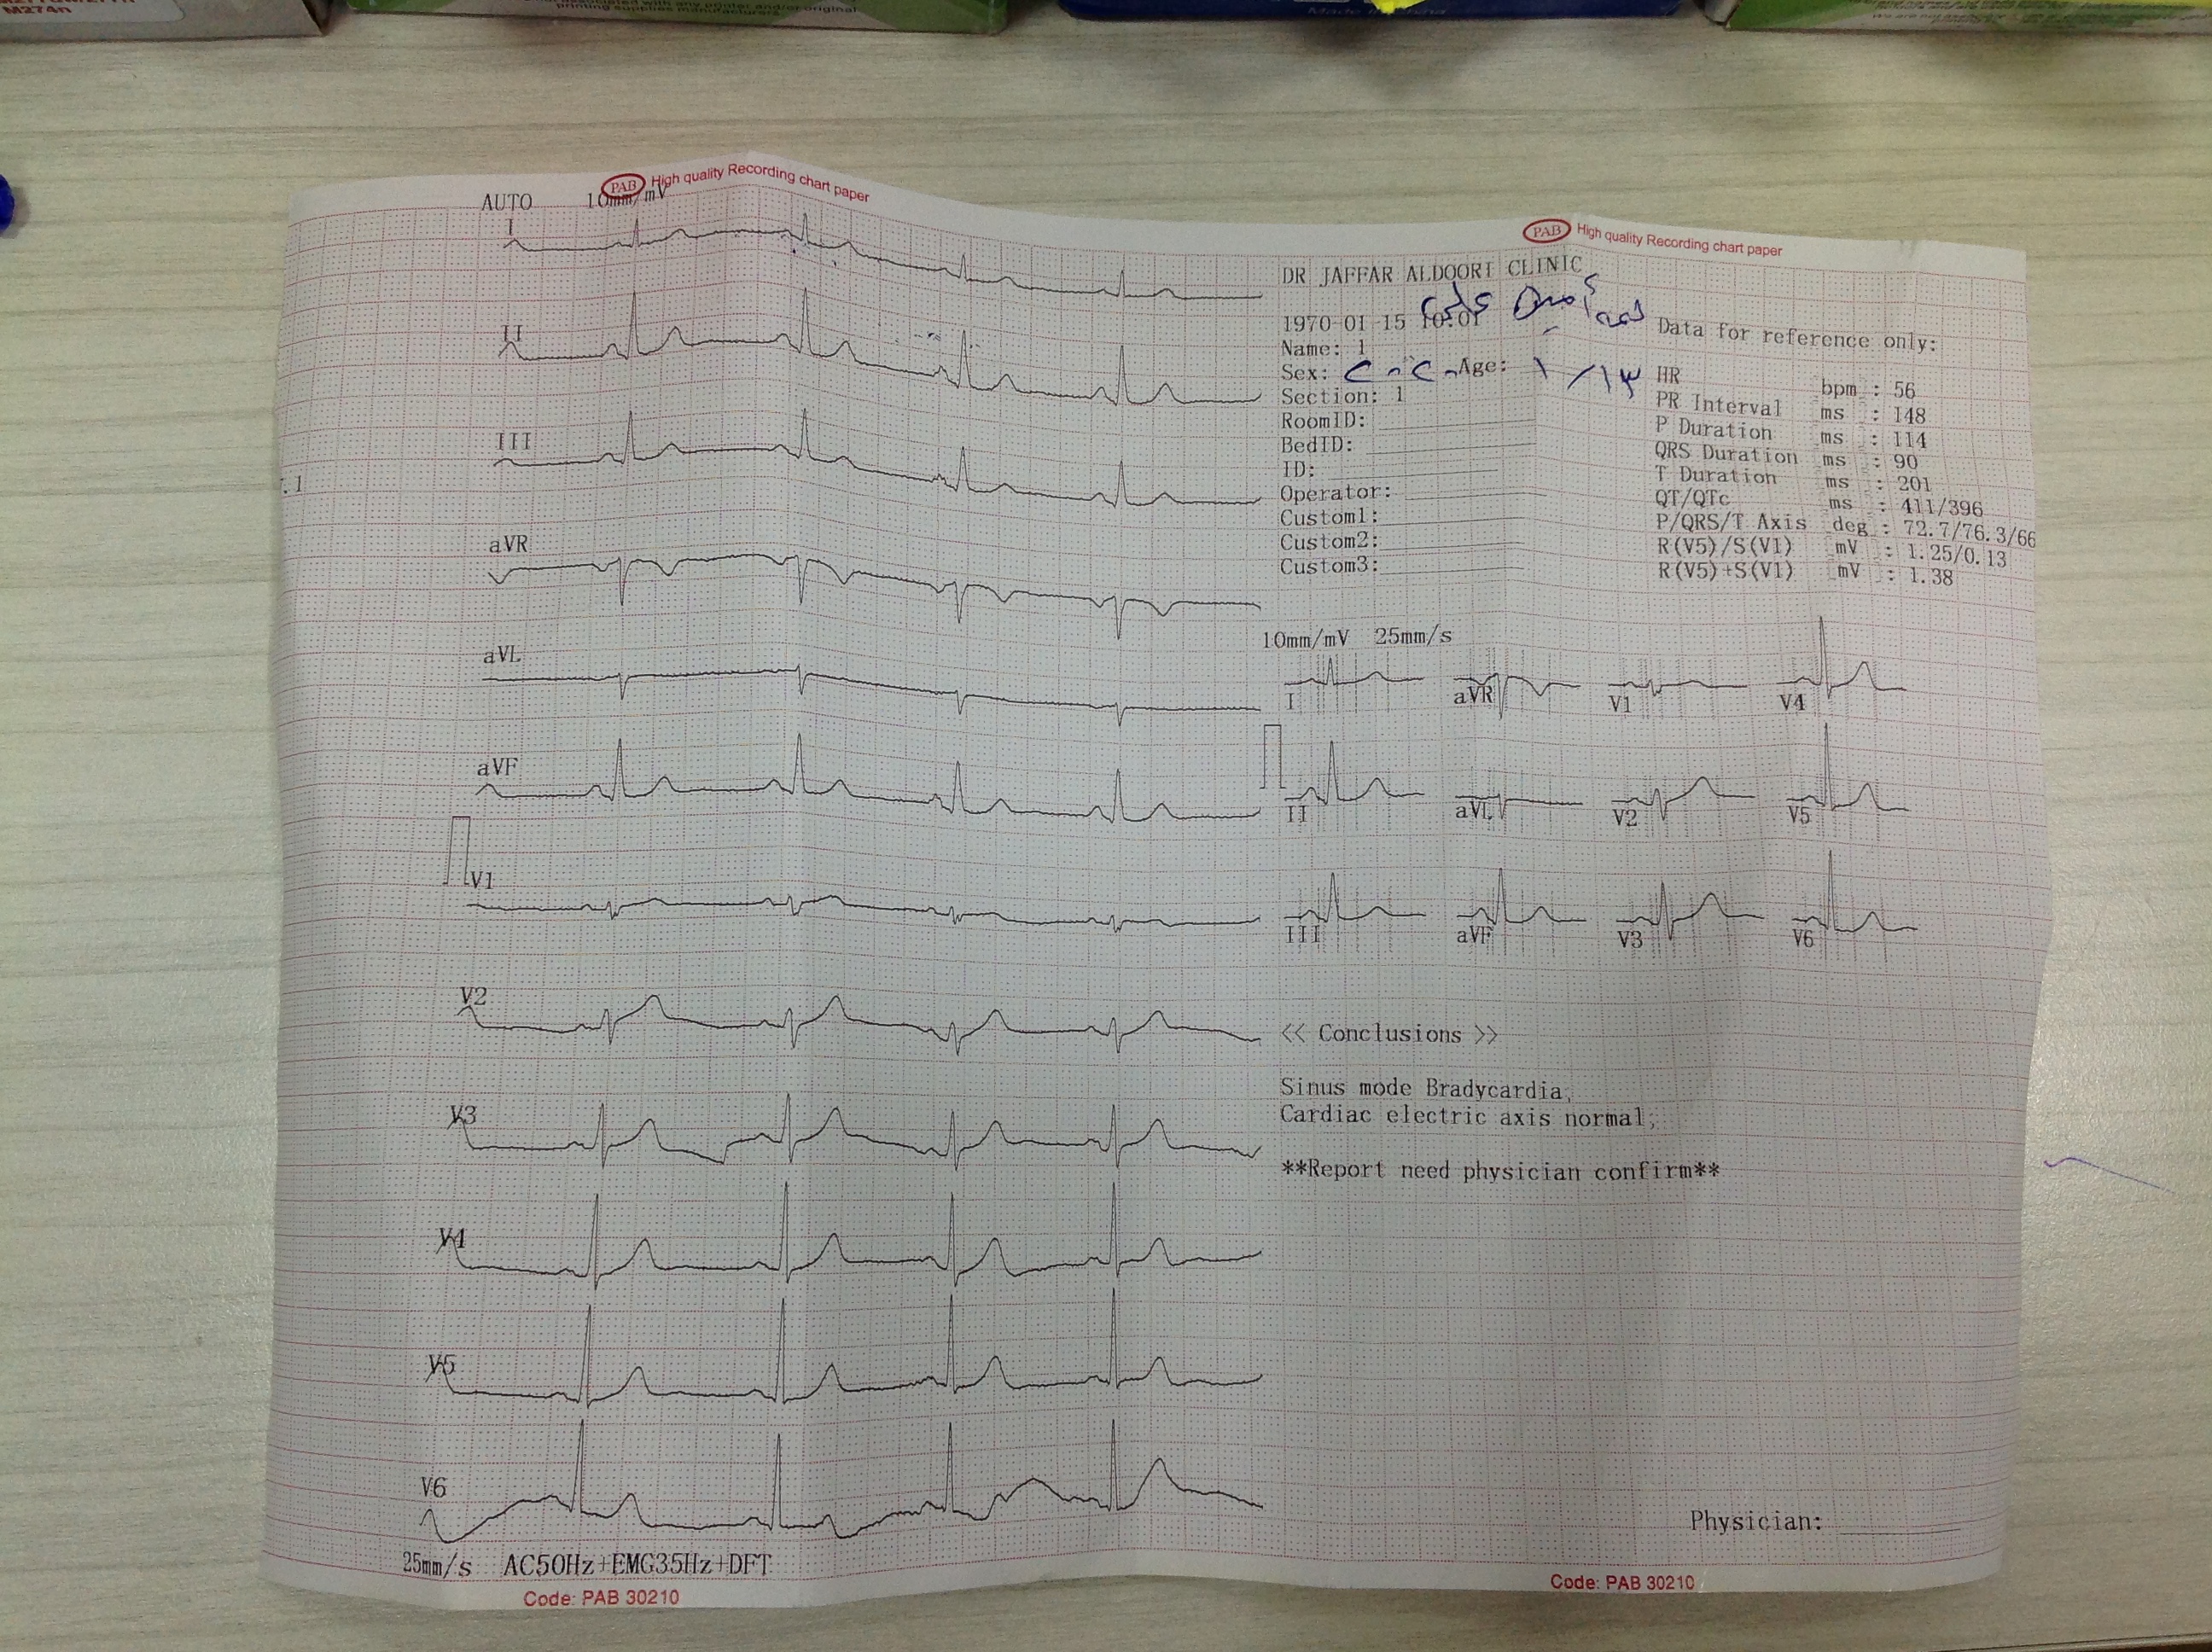 M274n
printing supplies manufacturers
Made in China
PAB High quality Recording chart paper
PAB High quality Recording chart paper
AUTO 10mm/mV
I
II
III
aVR
aVL
aVF
V1
V2
V3
V4
V5
V6
25mm/s AC50Hz+EMG35Hz+DFT
Code: PAB 30210
DR JAFFAR ALDOORI CLINIC
1970-01-15 10:01
Name: 1
Sex: Age: ١ /١٣
Section: 1
RoomID:
BedID:
ID:
Operator:
Custom1:
Custom2:
Custom3:
Data for reference only:
HR bpm : 56
PR Interval ms : 148
P Duration ms : 114
QRS Duration ms : 90
T Duration ms : 201
QT/QTc ms : 411/396
P/QRS/T Axis deg : 72.7/76.3/66
R(V5)/S(V1) mV : 1.25/0.13
R(V5)+S(V1) mV : 1.38
10mm/mV 25mm/s
I aVR V1 V4
II aVL V2 V5
III aVF V3 V6
<< Conclusions >>
Sinus mode Bradycardia;
Cardiac electric axis normal;
**Report need physician confirm**
Physician:
Code: PAB 30210